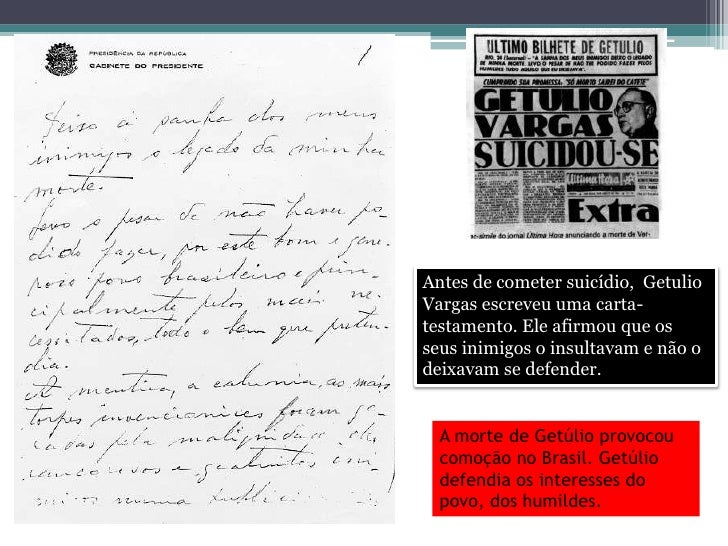 PRESIDÊNCIA DA REPÚBLICA
GABINETE DO PRESIDENTE
1
Deixo à sanha dos meus
inimigos o legado da minha
morte.
Levo o pesar de não haver po-
dido fazer, por este bom e gene-
roso povo brasileiro e prin-
cipalmente pelos mais ne-
cessitados, todo o bem que preten-
dia.
A mentira, a calumnia, as mais
torpes invencionices foram ge-
radas pela malignidade de
rancorosos e gratuitos ini-
migos numa publici
ULTIMO BILHETE DE GETULIO
CUMPRINDO SUA PROMESSA: "SÓ MORTO SAIREI DO CATETE"
GETULIO
VARGAS
SUICIDOU-SE
Ultima Hora
Extra
ac-símile do jornal Última Hora anunciando a morte de Var-
Antes de cometer suicídio, Getulio
Vargas escreveu uma carta-
testamento. Ele afirmou que os
seus inimigos o insultavam e não o
deixavam se defender.
A morte de Getúlio provocou
comoção no Brasil. Getúlio
defendia os interesses do
povo, dos humildes.